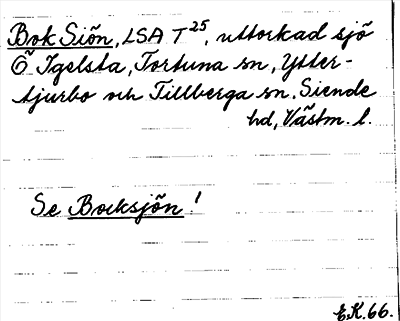 Bok Siön, LSA T 25, uttorkad sjö
Ö Igelsta, Tortuna sn, Ytter-
tjurbo och Tillberga sn, Siende
hd, Västm. l.
Se Bocksjön!
E.K. 66.